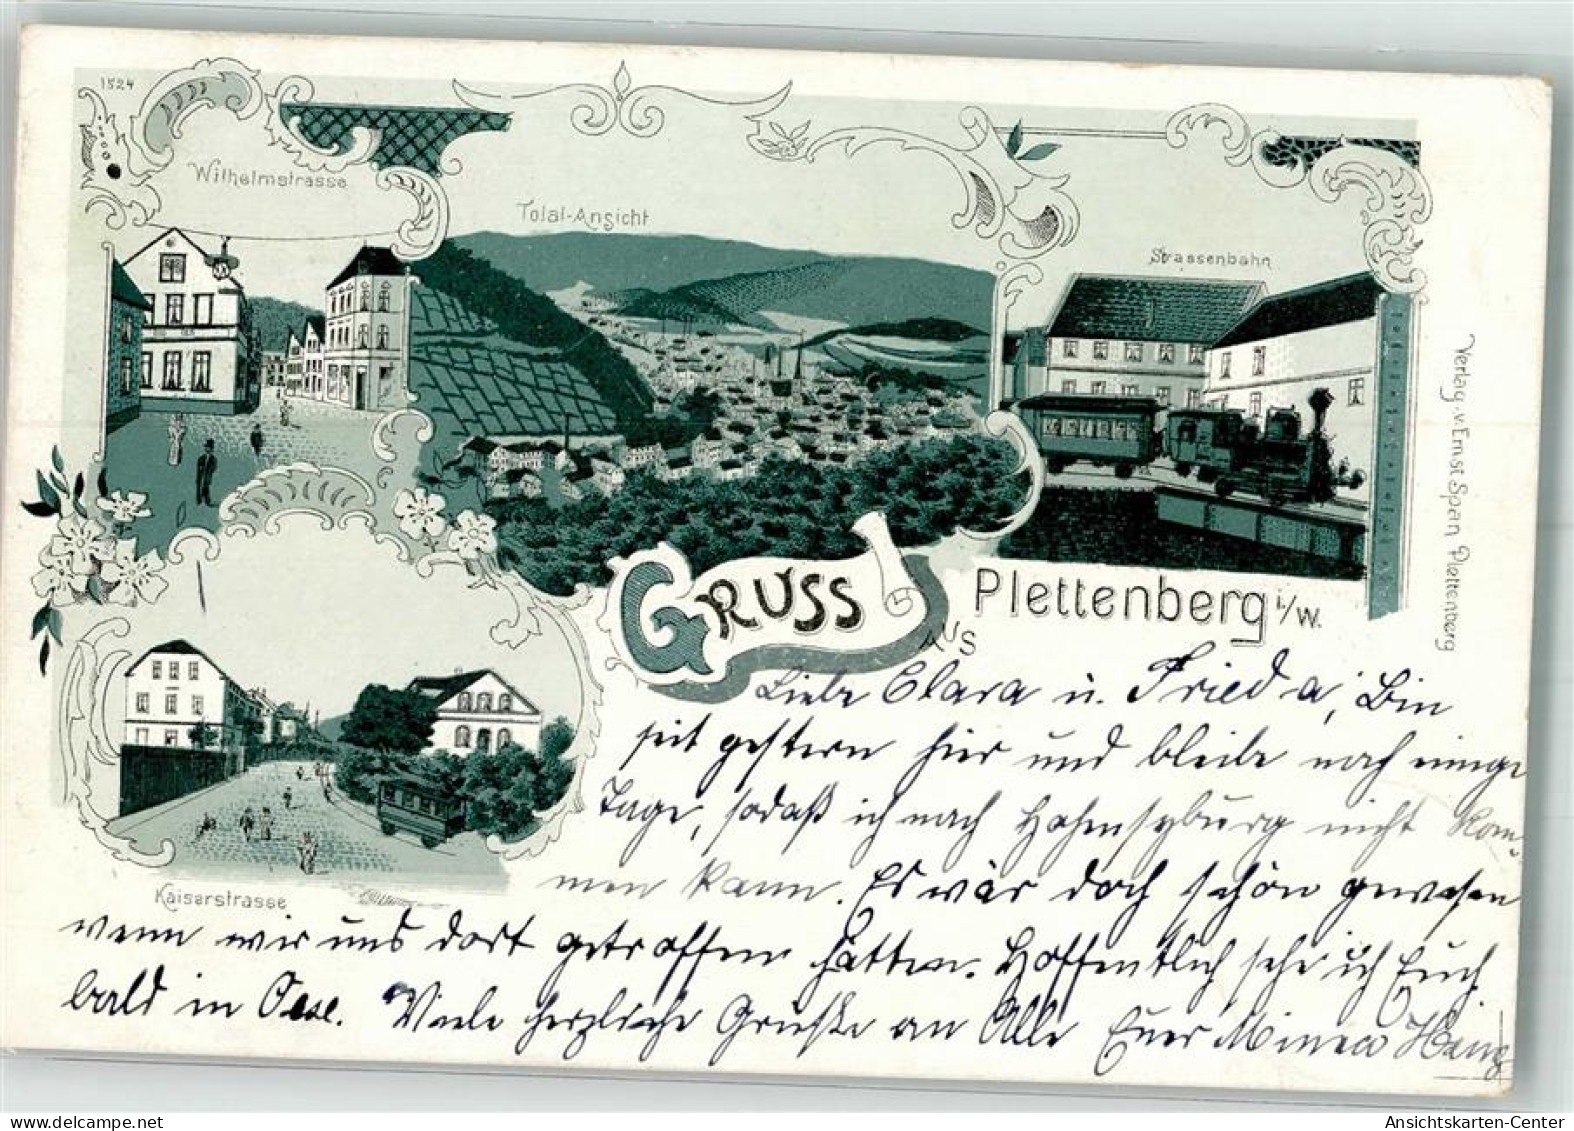 1524
Wilhelmstrasse
Total-Ansicht
Strassenbahn
Verlag v. Ernst Span Plettenberg
GRUSS
AUS
Plettenberg i/W.
Kaiserstrasse
Liebe Clara u. Frieda, Bin
seit gestern hier und bleibe noch einige
Tage, sodaß ich nach Hohensyburg nicht kom-
men kann. Es wär doch schön gewesen
wenn wir uns dort getroffen hätten. Hoffentlich sehe ich Euch
bald in Oese. Viele herzliche Grüße an Alle Euer
www.delcampe.net
Ansichtskarten-Center